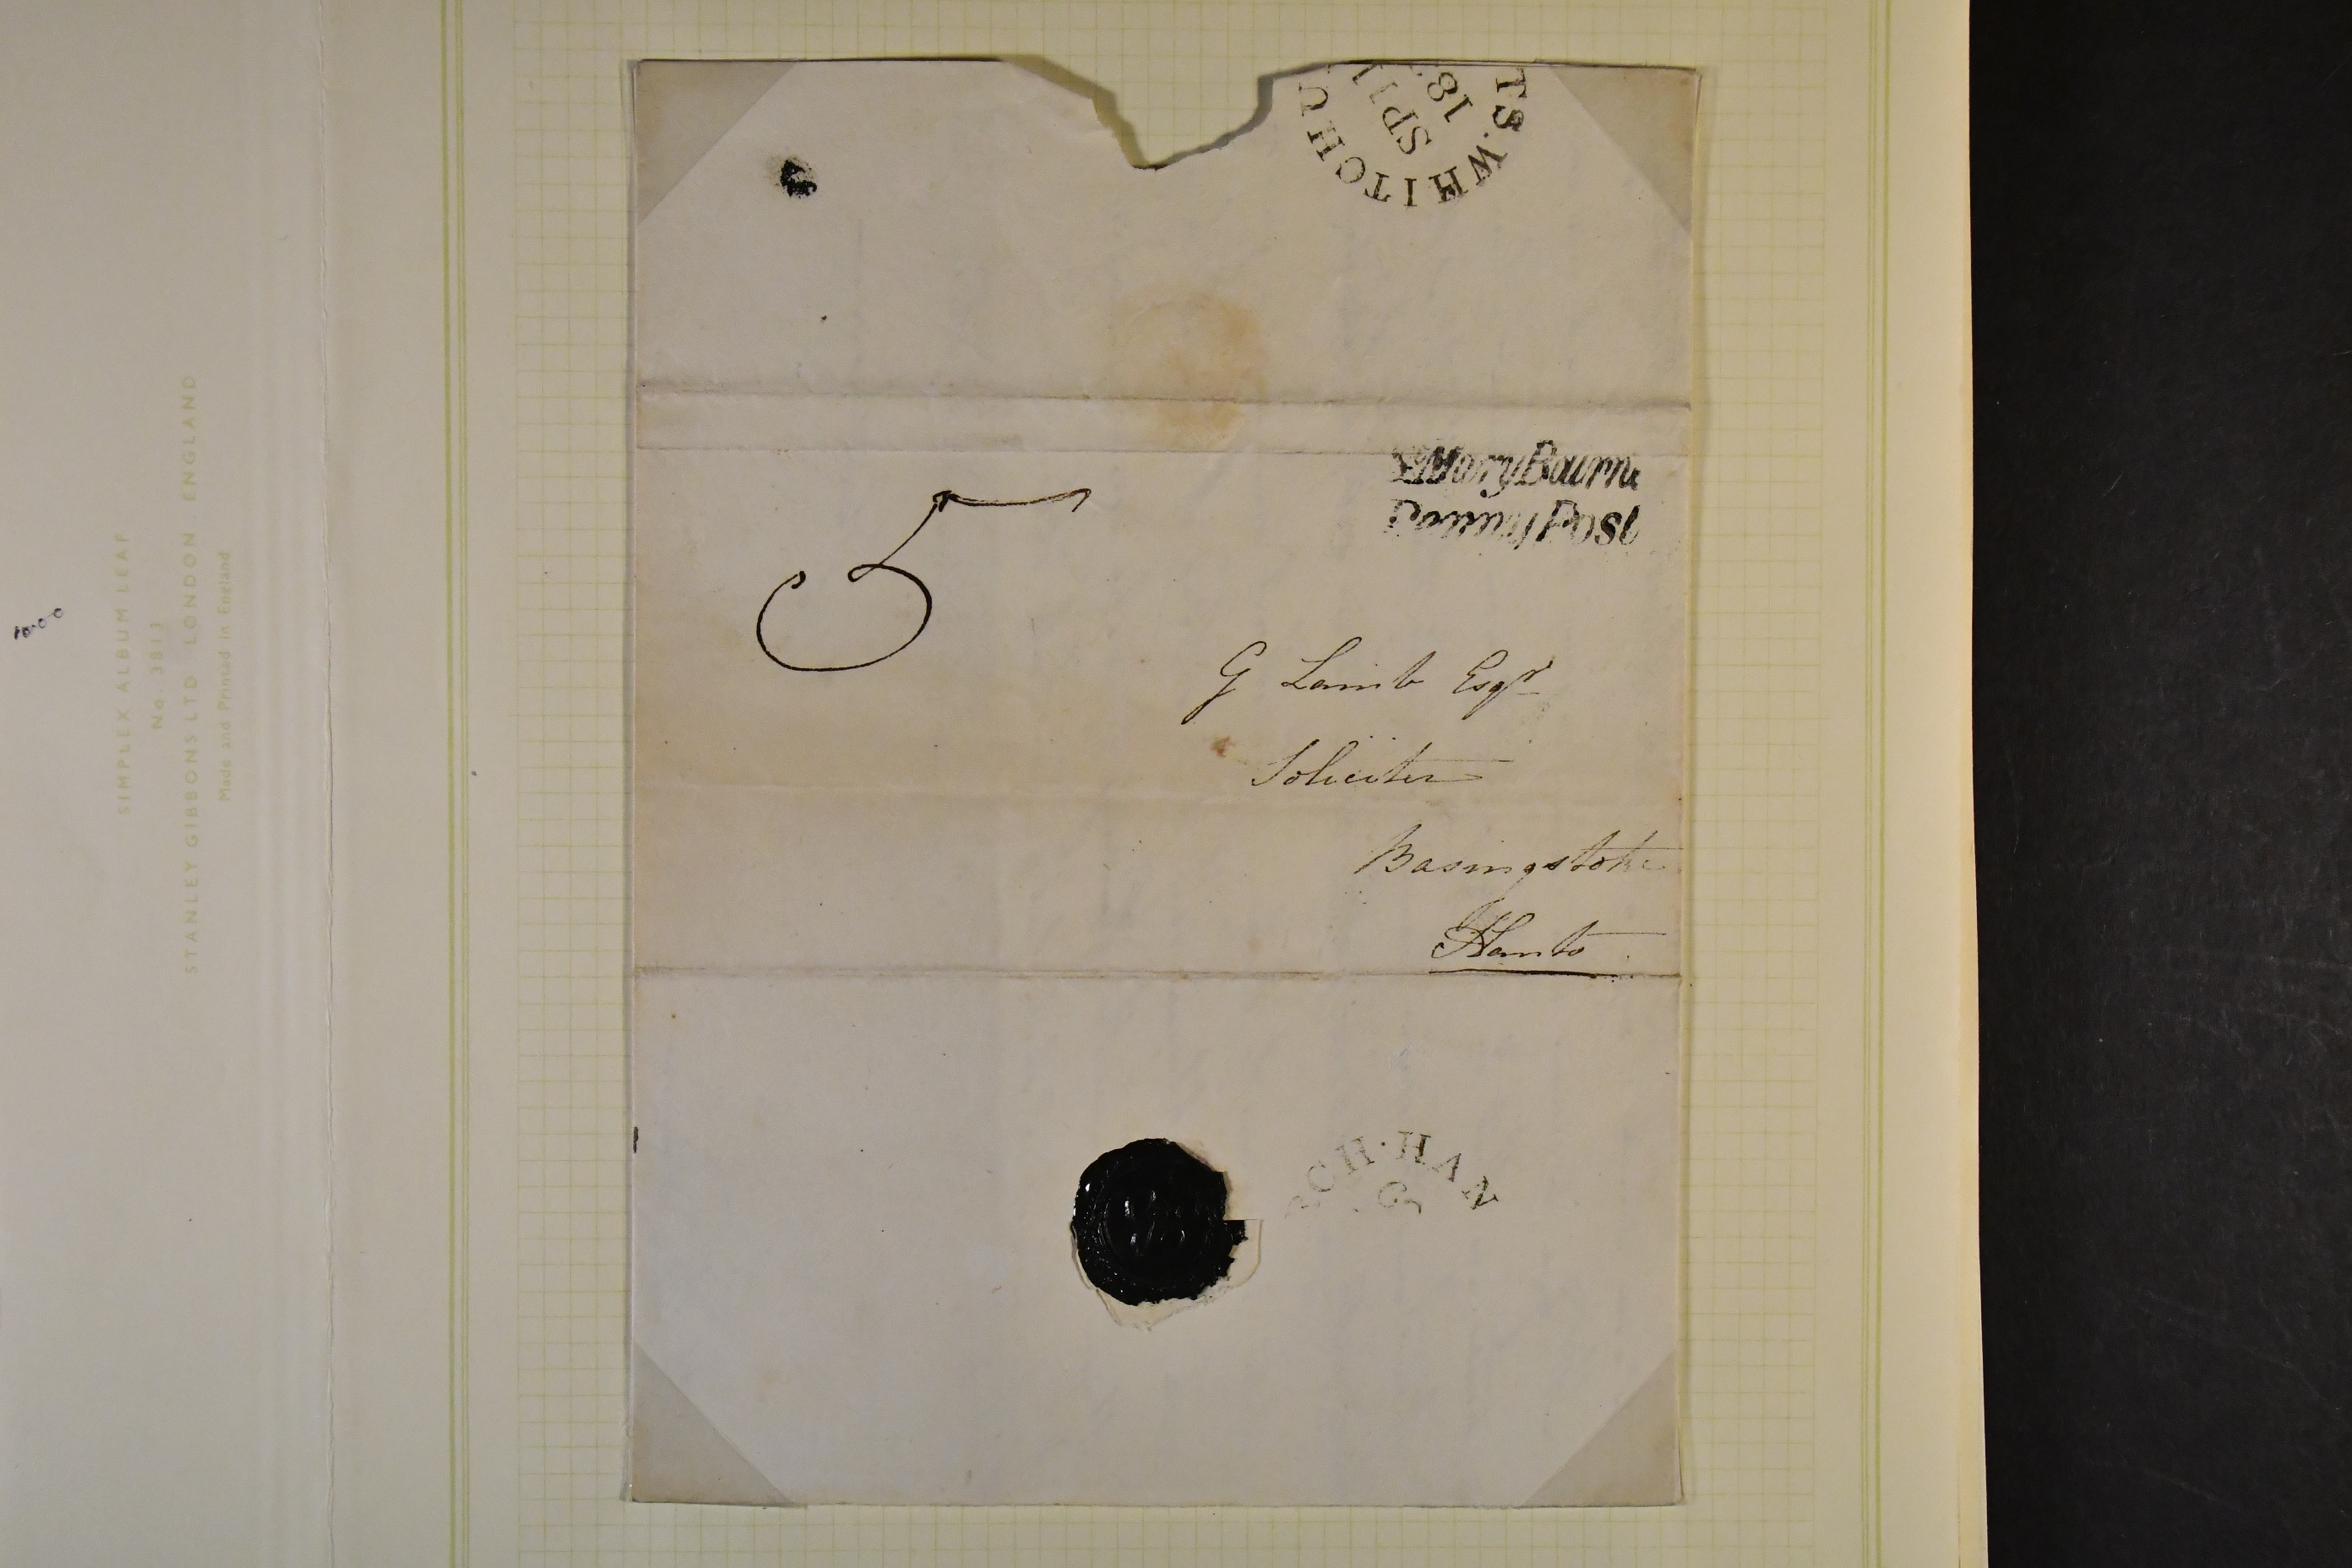 SIMPLEX ALBUM LEAF
No. 3813
STANLEY GIBBONS LTD LONDON ENGLAND
Made and Printed in England
TS·WHITCHU
SP11
18
St Mary Bourne
Penny Post
5
G Lamb Esqr
Soliciter
Basingstoke
Hants
RCH·HAN